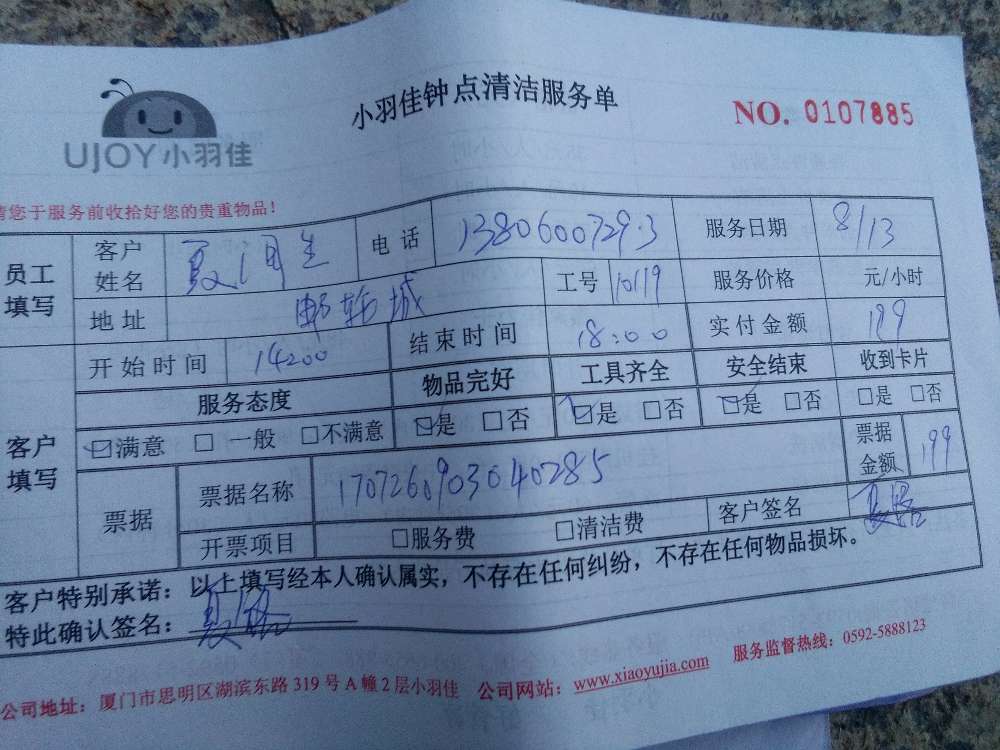 UJOY小羽佳
小羽佳钟点清洁服务单
NO. 0107885
请您于服务前收拾好您的贵重物品！
员工填写
客户姓名 夏 生 电话 13806007293 服务日期 8/13
地址 邮轮城 工号 10119 服务价格 元/小时
客户填写
开始时间 14:00 结束时间 18:00 实付金额 199
服务态度 物品完好 工具齐全 安全结束 收到卡片
☑满意 □一般 □不满意 ☑是 □否 ☑是 □否 ☑是 □否 □是 □否
票据 票据名称 1707260903040285 票据金额 199
开票项目 □服务费 □清洁费 客户签名 夏
客户特别承诺：以上填写经本人确认属实，不存在任何纠纷，不存在任何物品损坏。
特此确认签名：夏
公司地址：厦门市思明区湖滨东路319号A幢2层小羽佳 公司网站：www.xiaoyujia.com 服务监督热线：0592-5888123